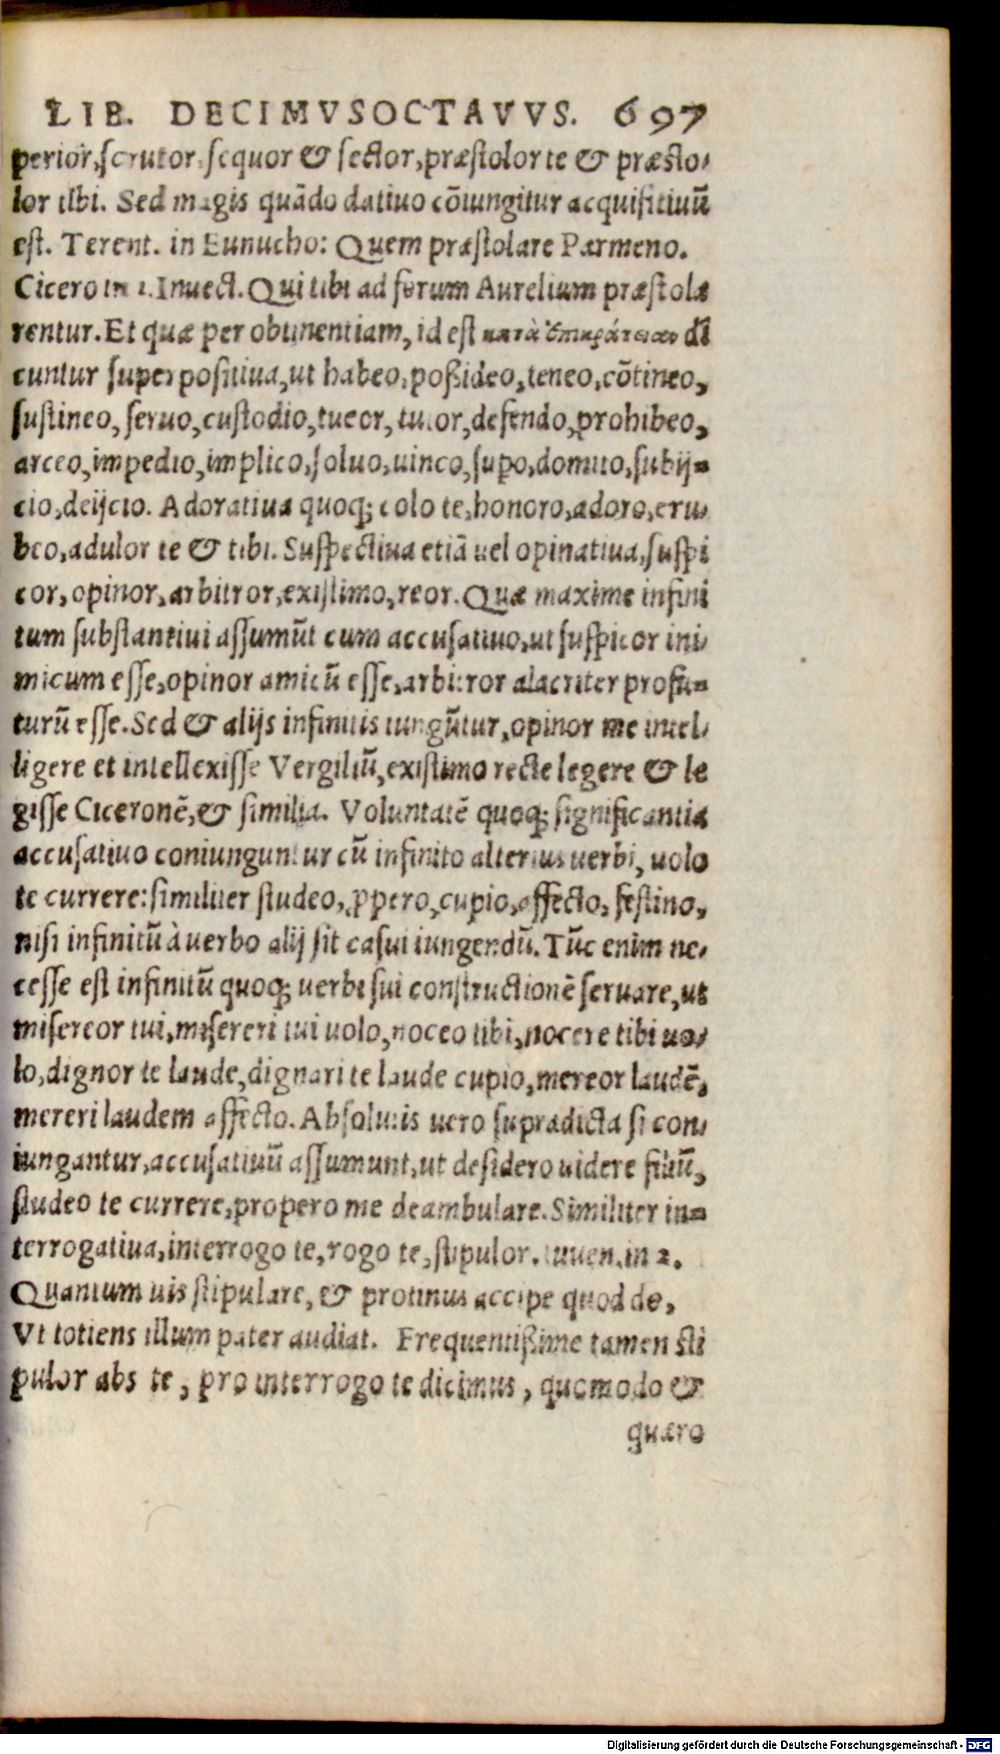 LIB. DECIMVSOCTAVVS. 697
perior, scrutor, sequor & sector, præstolor te & præsto-
lor tibi. Sed magis quãdo datiuo cõiungitur acquisitiuũ
est. Terent. in Eunucho: Quem præstolare Parmeno.
Cicero in 1. Inuect. Qui tibi ad forum Aurelium præstola
rentur. Et quæ per obtinentiam, id est κατὰ ἐπικράτειαν di
cuntur superpositiua, ut habeo, poßideo, teneo, cõtineo,
sustineo, seruo, custodio, tueor, tutor, defendo, prohibeo,
arceo, impedio, implico, soluo, uinco, supo, domito, subij-
cio, deijcio. Adoratiua quoq; colo te, honoro, adoro, eru-
beo, adulor te & tibi. Suspectiua etiã uel opinatiua, suspi
cor, opinor, arbitror, existimo, reor. Quæ maxime infini
tum substantiui assumũt cum accusatiuo, ut suspicor ini-
micum esse, opinor amicũ esse, arbitror alacriter profu-
turũ esse. Sed & alijs infinitis iungũtur, opinor me intel-
ligere et intellexisse Vergiliũ, existimo recte legere & le
gisse Ciceronẽ, & similia. Voluntatẽ quoq; significantia
accusatiuo coniunguntur cũ infinito alterius uerbi, uolo
te currere: similiter studeo, ꝓpero, cupio, affecto, festino,
nisi infinitũ à uerbo alij sit casui iungendũ. Tũc enim ne-
cesse est infinitũ quoq; uerbi sui constructionẽ seruare, ut
misereor tui, misereri tui uolo, noceo tibi, nocere tibi uo-
lo, dignor te laude, dignari te laude cupio, mereor laudẽ,
mereri laudem affecto. Absolutis uero supradicta si con-
iungantur, accusatiuũ assumunt, ut desidero uidere filiũ,
studeo te currere, propero me deambulare. Similiter in-
terrogatiua, interrogo te, rogo te, stipulor. Iuuen. in 2.
Quantum uis stipulare, & protinus accipe quod de,
Vt totiens illum pater audiat. Frequentißime tamen sti
pulor abs te, pro interrogo te dicimus, quomodo &
quæro
Digitalisierung gefördert durch die Deutsche Forschungsgemeinschaft - DFG